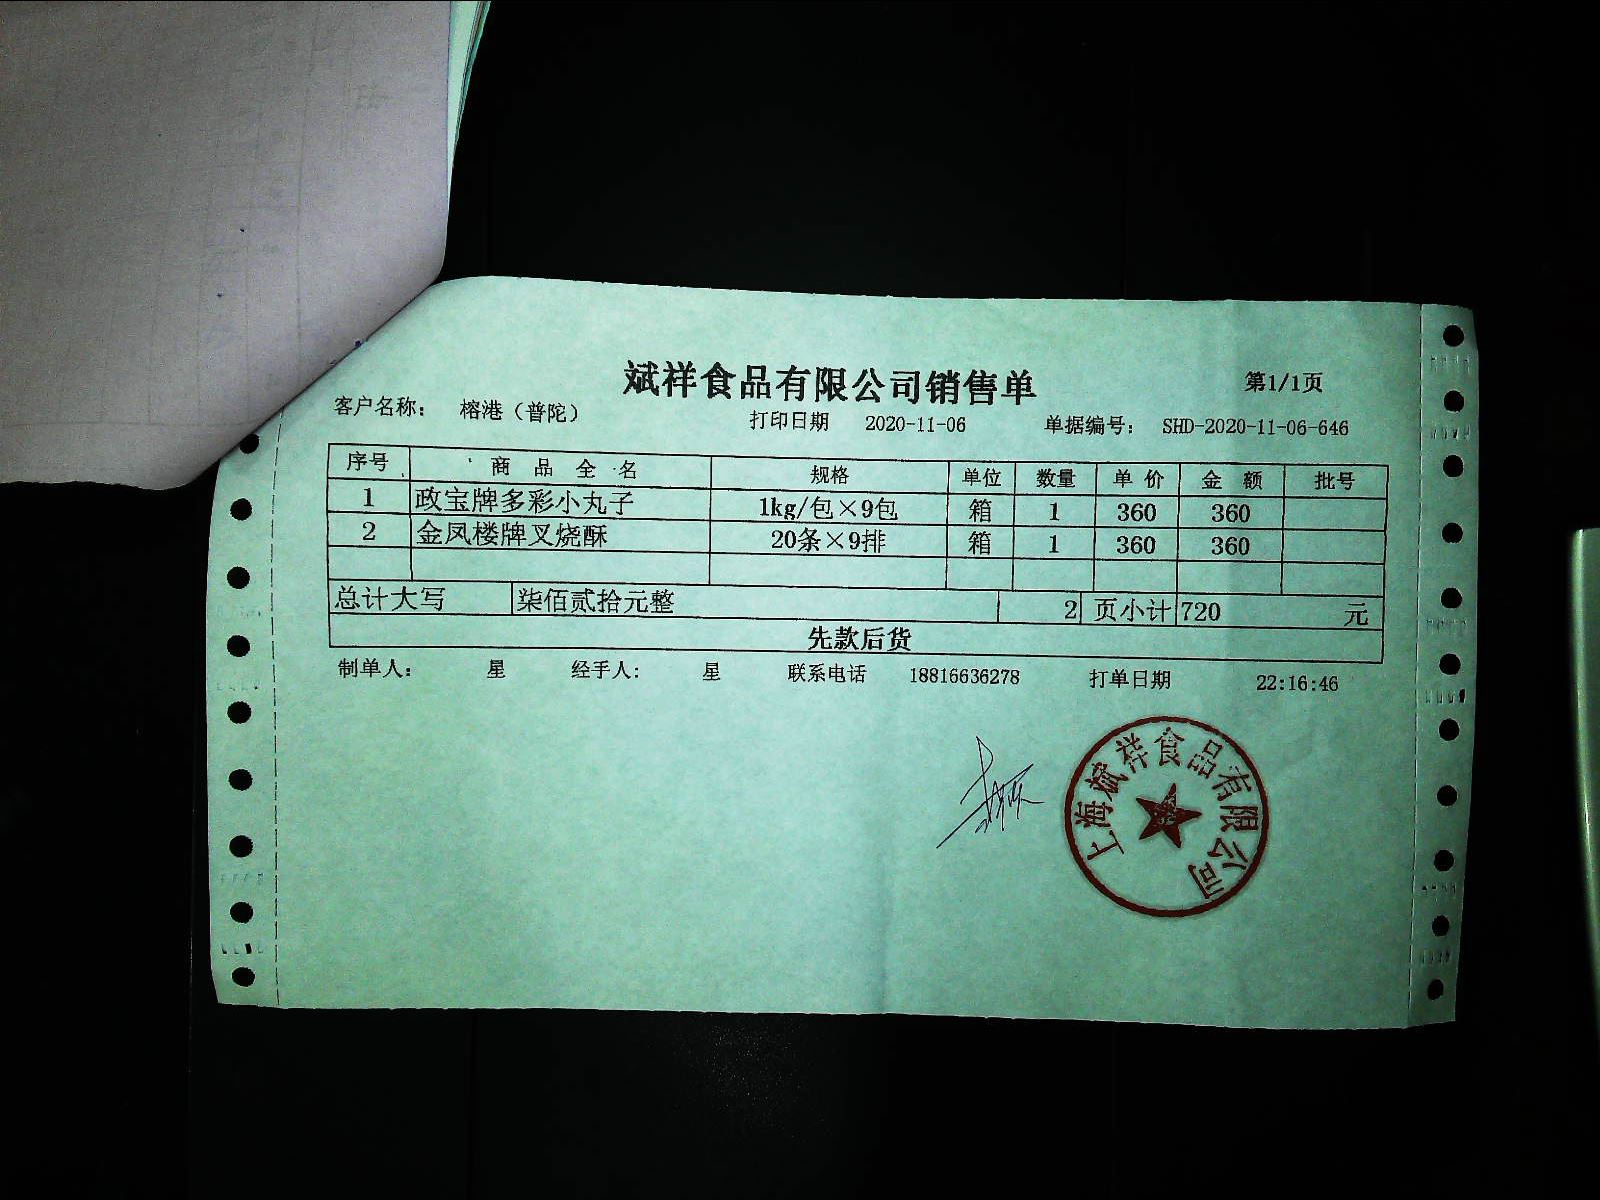 斌祥食品有限公司销售单 第1/1页
客户名称: 榕港（普陀） 打印日期 2020-11-06 单据编号: SHD-2020-11-06-646
序号 商品全名 规格 单位 数量 单价 金额 批号
1 政宝牌多彩小丸子 1kg/包×9包 箱 1 360 360
2 金凤楼牌叉烧酥 20条×9排 箱 1 360 360
总计大写 柒佰贰拾元整 2 页小计 720 元
先款后货
制单人: 星 经手人: 星 联系电话 18816636278 打单日期 22:16:46
上海斌祥食品有限公司